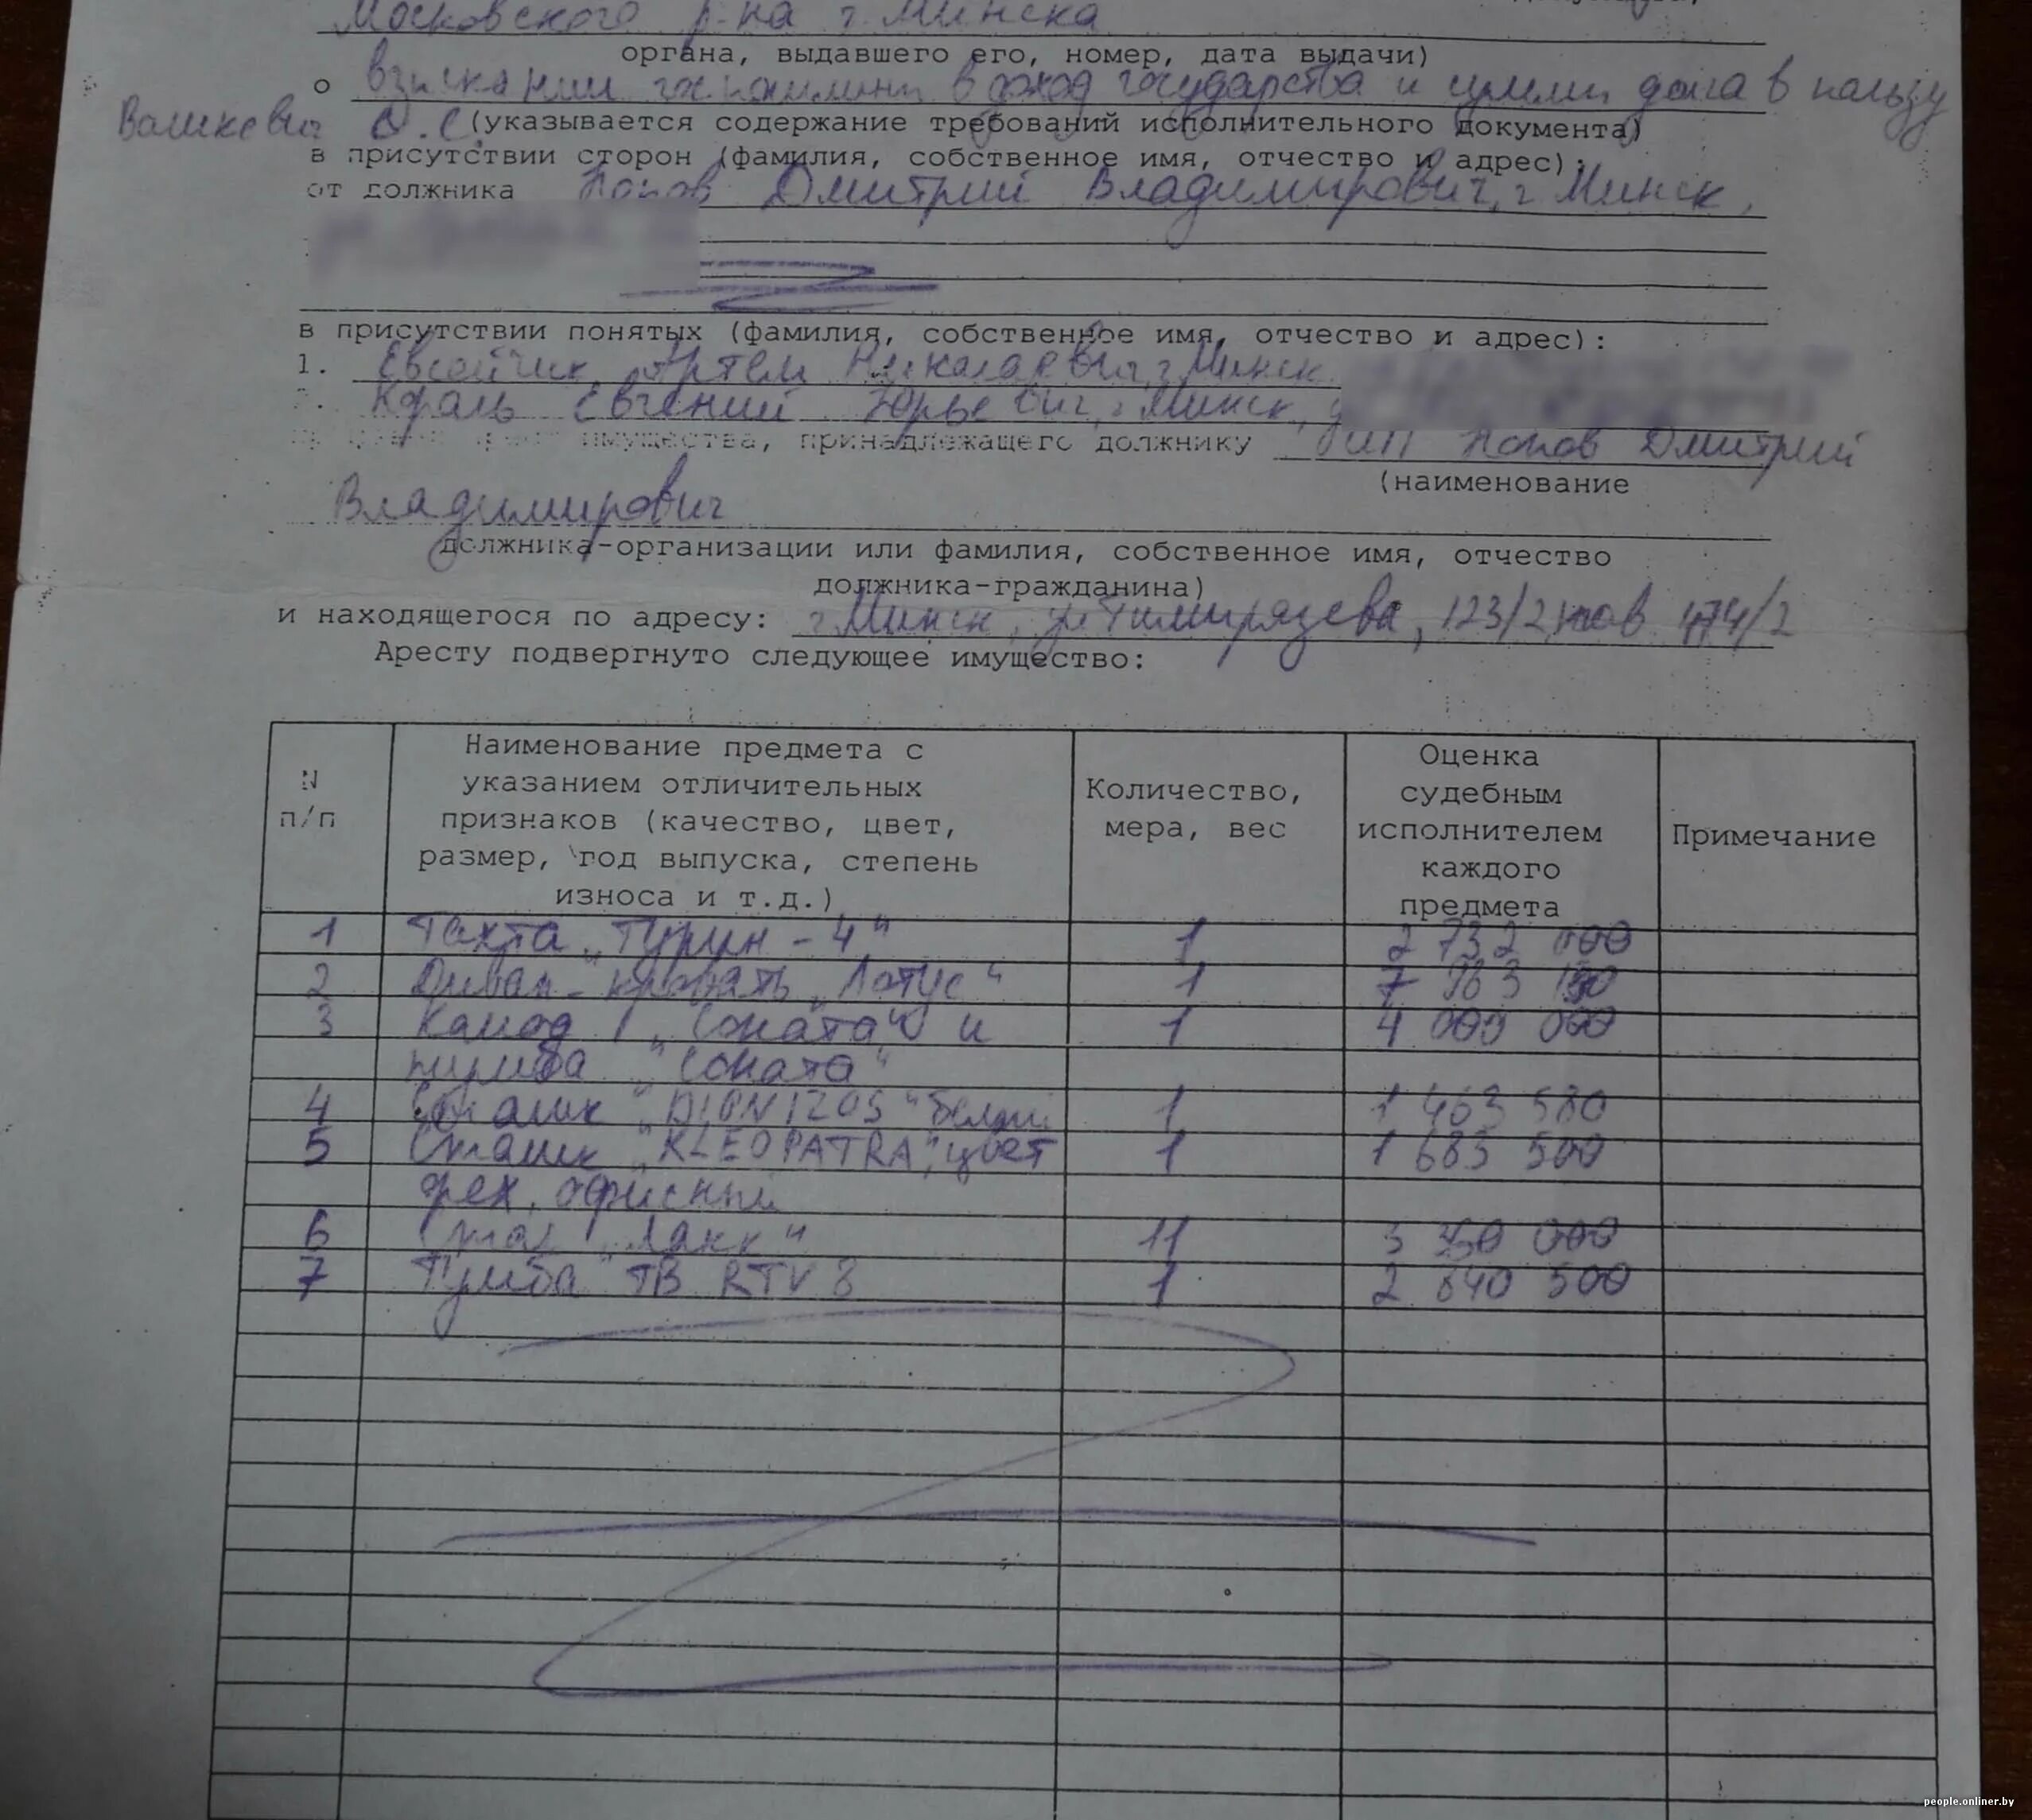 Московского р-на г. Минска
органа, выдавшего его, номер, дата выдачи)
о взыскании госпошлины в доход государства и суммы долга в пользу
О.С. (указывается содержание требований исполнительного документа)
в присутствии сторон (фамилия, собственное имя, отчество и адрес):
от должника Попов Дмитрий Владимирович, г. Минск,
в присутствии понятых (фамилия, собственное имя, отчество и адрес):
1. Евсейчик Артем Николаевич, г. Минск
2. Король Евгений Юрьевич, г. Минск,
имущества, принадлежащего должнику ИП Попов Дмитрий
(наименование
Владимирович
должника-организации или фамилия, собственное имя, отчество
должника-гражданина)
и находящегося по адресу: г. Минск, ул. Тимирязева, 123/2 пав 474/2
Аресту подвергнуто следующее имущество:
N п/п
Наименование предмета с указанием отличительных признаков (качество, цвет, размер, год выпуска, степень износа и т.д.)
Количество, мера, вес
Оценка судебным исполнителем каждого предмета
Примечание
1 Тахта „Турин - 4" 1 2 732 000
2 Диван - кровать „Лотус" 1 7 963
3 Камод „Соната" и 1 4 000 000
тумба "Соната"
4 Столик "DIONIZOS" белый 1 1 463 580
5 Столик "KLEOPATRA", цвет 1 1 685 500
орех, офисный
6 Стол "Лакк" 11 3 000
7 Тумба ТВ RTV 8 1 2 640 500
people.onliner.by